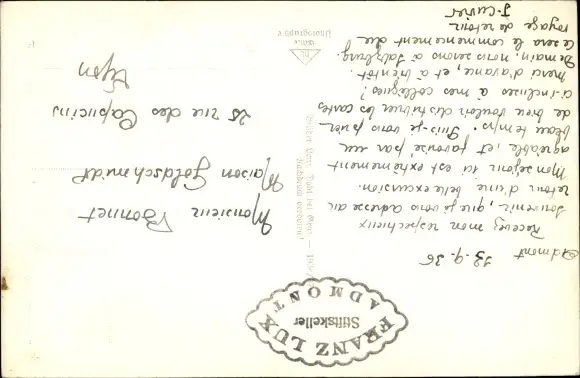 Admont 13.9.36
Recevez mon respectueux
souvenir, que je vous adresse au
retour d'une belle excursion.
Mon séjour ici est extrêmement
agréable, et favorisé par un
beau temps. Puis-je vous prier
de bien vouloir distribuer les cartes
ci-incluses à mes collègues?
Merci d'avance, et à bientôt.
Demain, nous serons à Salzburg.
Ce sera le commencement du
voyage de retour.
J. Cuvier
Monsieur Bonnet
Maison Goldschmidt
25 rue des Capucins
Lyon
FRANZ LUX
Stiftskeller
ADMONT